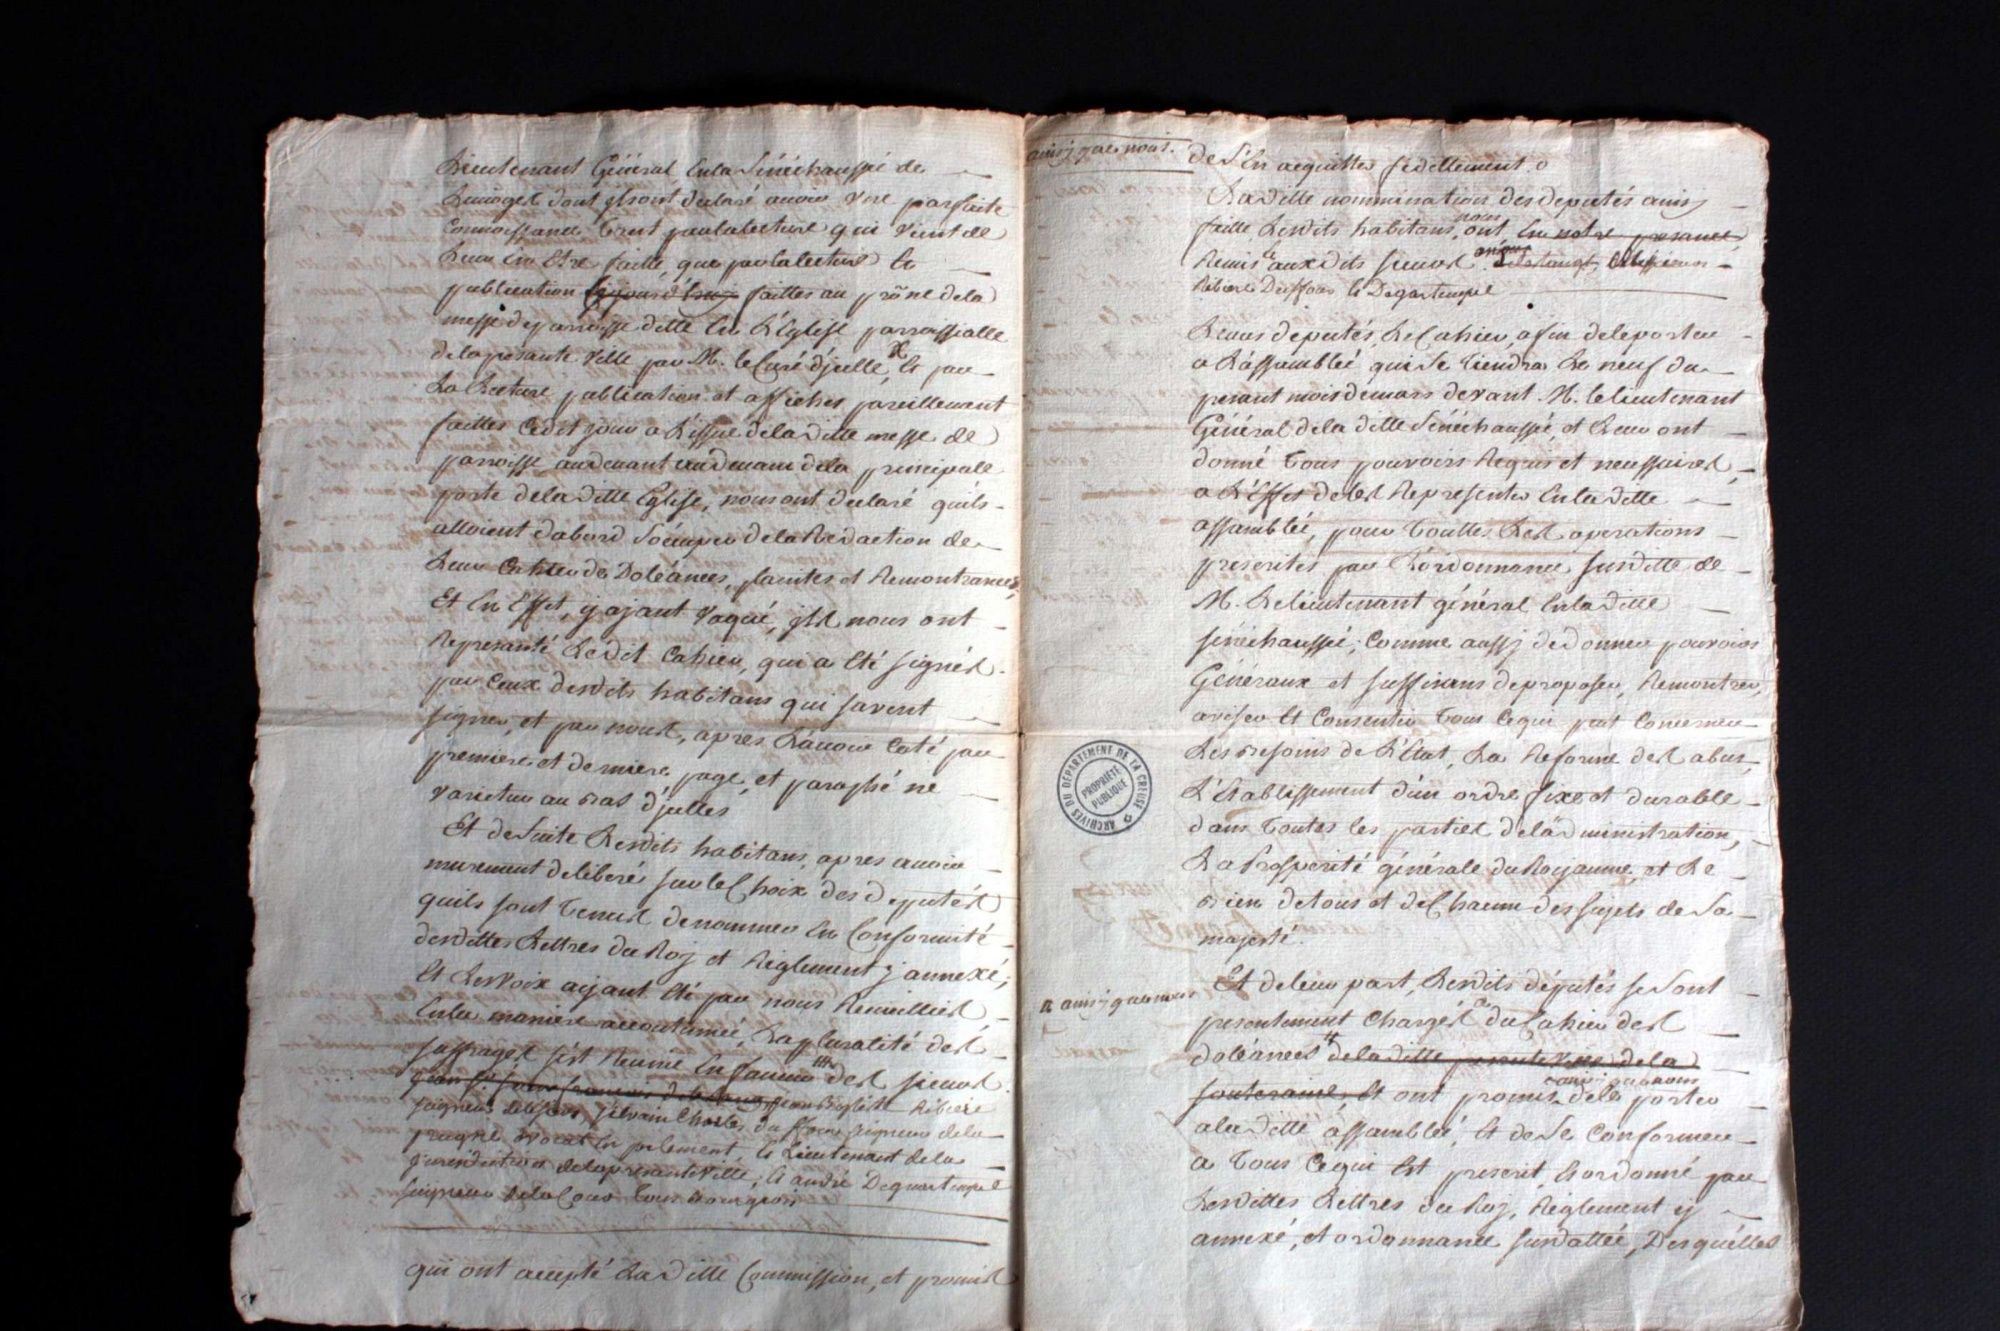 Lieutenant Général en la Sénéchaussée de
Limoges dont ils ont déclaré avoir une parfaite
connoissance tant par la lecture qui vient de
leur en être faitte, que par la lecture et
publication faittes au prône de la
messe de parroisse ditte en l'Eglise parroissialle
de la presante ville par M. le Curé d'jcelle, et par
la lecture publication et affiches pareillement
faittes cedit jour a l'issue de la ditte messe de
parroisse audevant de la principalle
porte de la ditte Eglise, nous ont déclaré quils
alloient d'abord s'occuper de la Rédaction de
leur cahier de Doléances, plaintes et Remontrances,
Et en Effet, y ajant vaqué, jls nous ont
Represanté ledit cahier, qui a été signés
par ceux desdits habitans qui savent
signer, et par nous, après l'avoir coté par
premiere et derniere page, et paraphé ne
varietur au bas d'jcelles
Et de suite lesdits habitans, apres avoir
murement deliberé sur le Choix des députés
quils sont tenus de nommer en Conformité
desdittes Lettres du Roj et Réglement j annexé;
Et les voix aijant été par nous Recueillies
en la maniere accoutumée, la pluralité des
suffrages s'est Reunie en faveur des sieurs
Jean Baptiste Ribiere
seigneur, silvain Charles du ffour seigneur de la
prugne avocat en parlement, et Lieutenant de la
jurisdiction de la presante ville, et andré Dequartempel
seigneur de la Cour tous bourgeois
qui ont accepté la ditte Commission, et promis
ainsj que nous.
de s'en acquitter fidellement.
La ditte nommination des députés ainsj
faitte, lesdits habitans, nous ont en notre presance,
Remis le auxdits sieurs
Ribiere Duffour et Dequartempel
leurs députés, le Cahier, afin de le porter
a l'assamblée qui se tiendra le neuf du
presant mois de mars devant M. le lieutenant
Général de la ditte Sénéchaussée, et leur ont
donné tous pouvoirs Requis et nessaires,
a l'Effet de les Representer en la ditte
assamblée, pour touttes les operations
prescrites par l'ordonnance susditte de
M. le lieutenant général en la ditte
sénéchaussée; comme aussj de donner pouvoirs
Généraux et suffisans de proposer, Remontrer,
aviser et Consentir tout ce qui peut Concerner
les besoins de l'état, la Reforme des abus,
l'établissement d'un ordre fixe et durable
dans toutes les parties de l'administration,
la Prosperité générale du Royaume, et le
bien de tous et de Chacun des sujets de Sa
majesté.
ainsj que nous
Et de leur part, lesdits députés se sont
presentement Chargés du Cahier des
doléances de la ditte presante ville de la
souteraine, et ont promis ainsi que nous de le porter
a la ditte assamblée, et de se Conformer
a tous ce qui est prescrit, et ordonné par
lesdittes Lettres du Roj, Réglement ij
annexé, et ordonnance susdattée, Desquelles
ARCHIVES DU DÉPARTEMENT DE LA CREUSE
PROPRIÉTÉ
PUBLIQUE